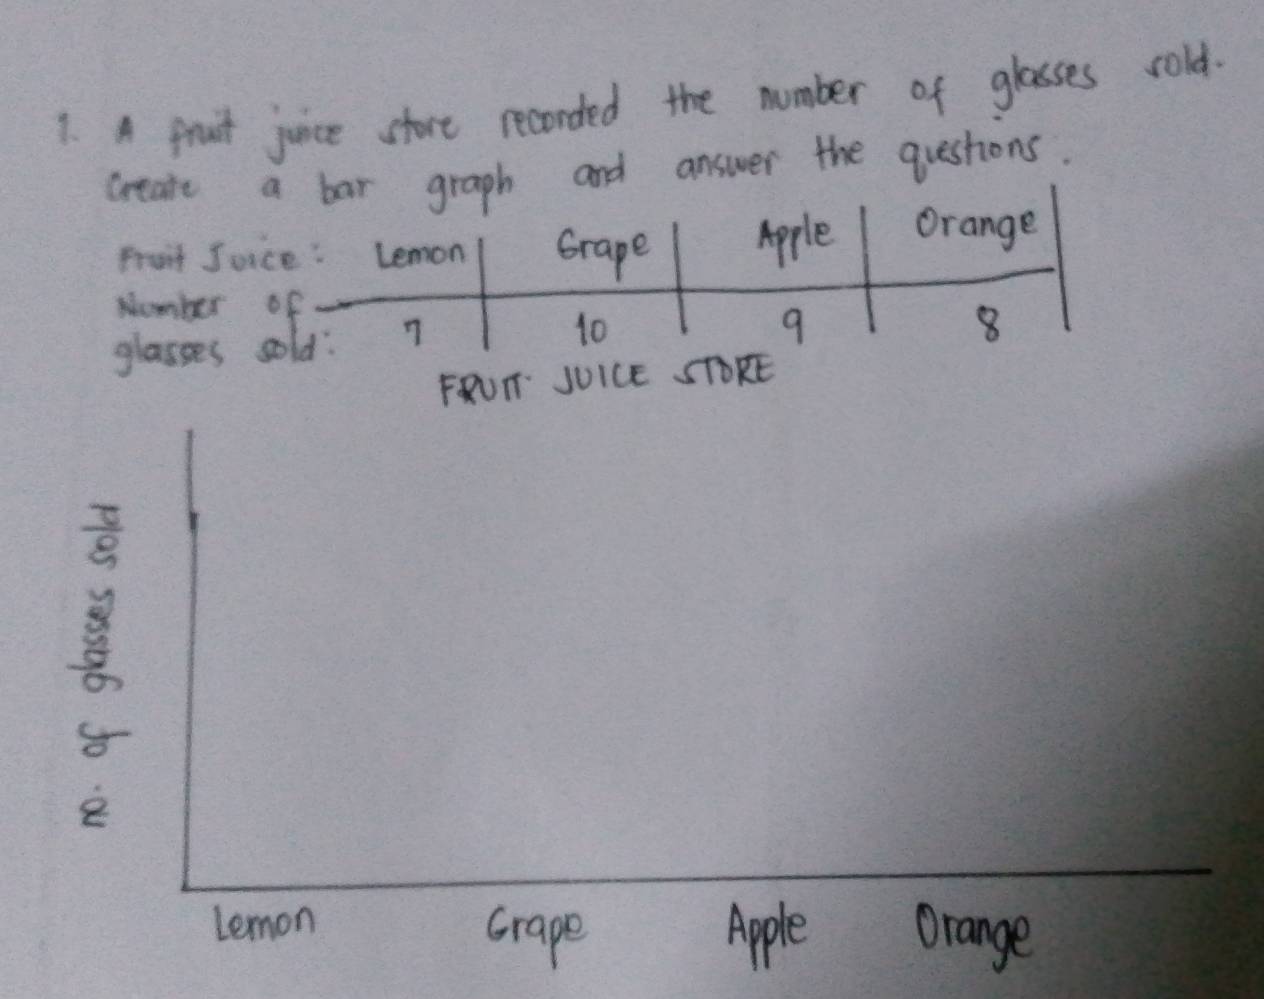 1. A fruit juice store recorded the number of glasses sold.
Create a bar graph and answer the questions.
Fruit Juice: Lemon Grape Apple Orange
Number of
glasses sold: 7 10 9 8
FRUIT JUICE STORE
no. of glasses sold
Lemon Grape Apple Orange